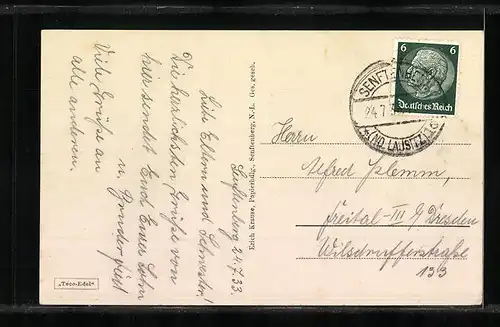 Senftenberg 24.7.33.
Liebe Eltern und Schwester!
Die herzlichsten Grüße von
hier sendet Euch Euer Sohn
u. Bruder
Viele Grüße an
alle anderen.
„Teco-Edel“
Erich Krause, Papierhdlg., Senftenberg, N.-L. Ges. gesch.
6 6
Deutsches Reich
SENFTENBERG
24.7.
(ND. LAUSITZ)
Herrn
Alfred
Freital-III b/ Dresden
Wilsdrufferstraße
133